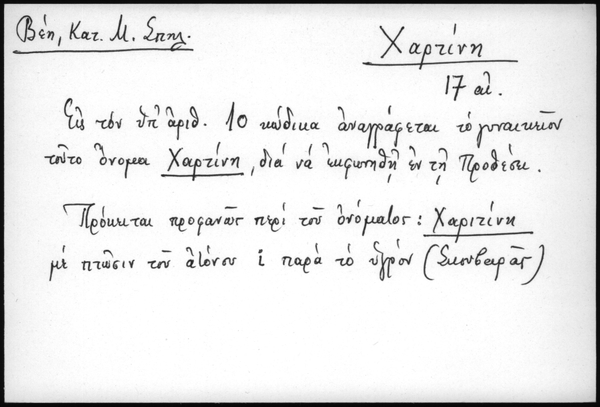 Βέη, Κατ. Μ. Σπηλ.
Χαρτίνη
17 αἰ.
Εἰς τόν ὑπ' ἀριθ. 10 κώδικα ἀναγράφεται τό γυναικεῖον
τοῦτο ὄνομα Χαρτίνη, διά νά ἐκφωνηθῇ ἐν τῇ Προθέσει.
Πρόκειται προφανῶς περί τοῦ ὀνόματος: Χαριτίνη
μέ πτῶσιν τοῦ ἀτόνου ι παρά τό ὑγρόν (Σκουβαρᾶς)